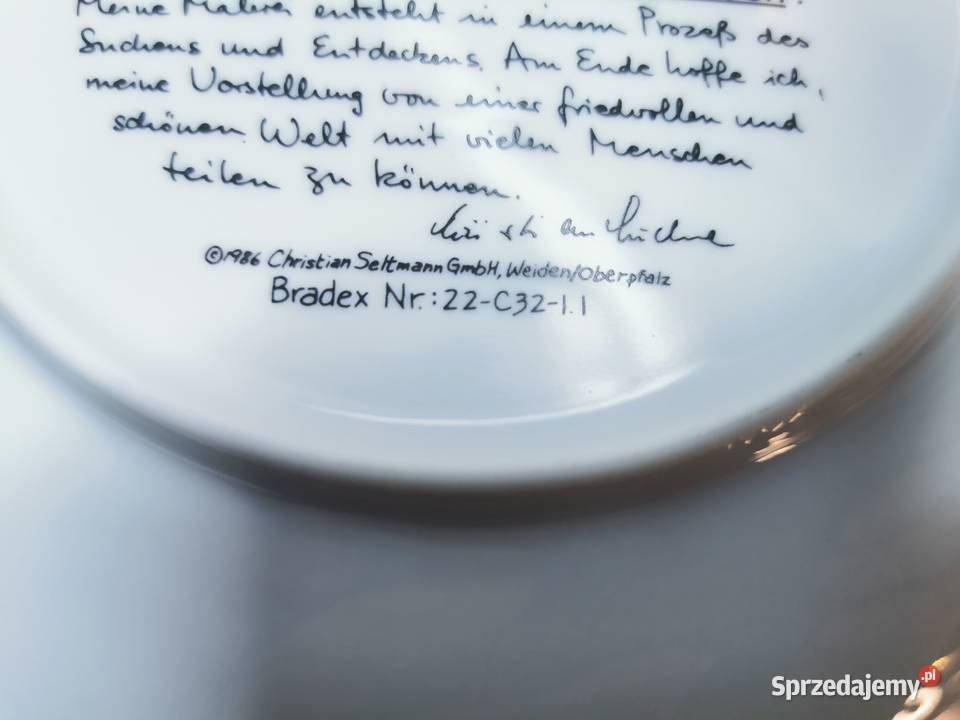 Meine Malerei entsteht in einem Prozeß des
Suchens und Entdeckens. Am Ende hoffe ich,
meine Vorstellung von einer friedvollen und
schönen Welt mit vielen Menschen
teilen zu können.
©1986 Christian Seltmann GmbH, Weiden/Oberpfalz
Bradex Nr.: 22-C32-1.1
Sprzedajemy.pl